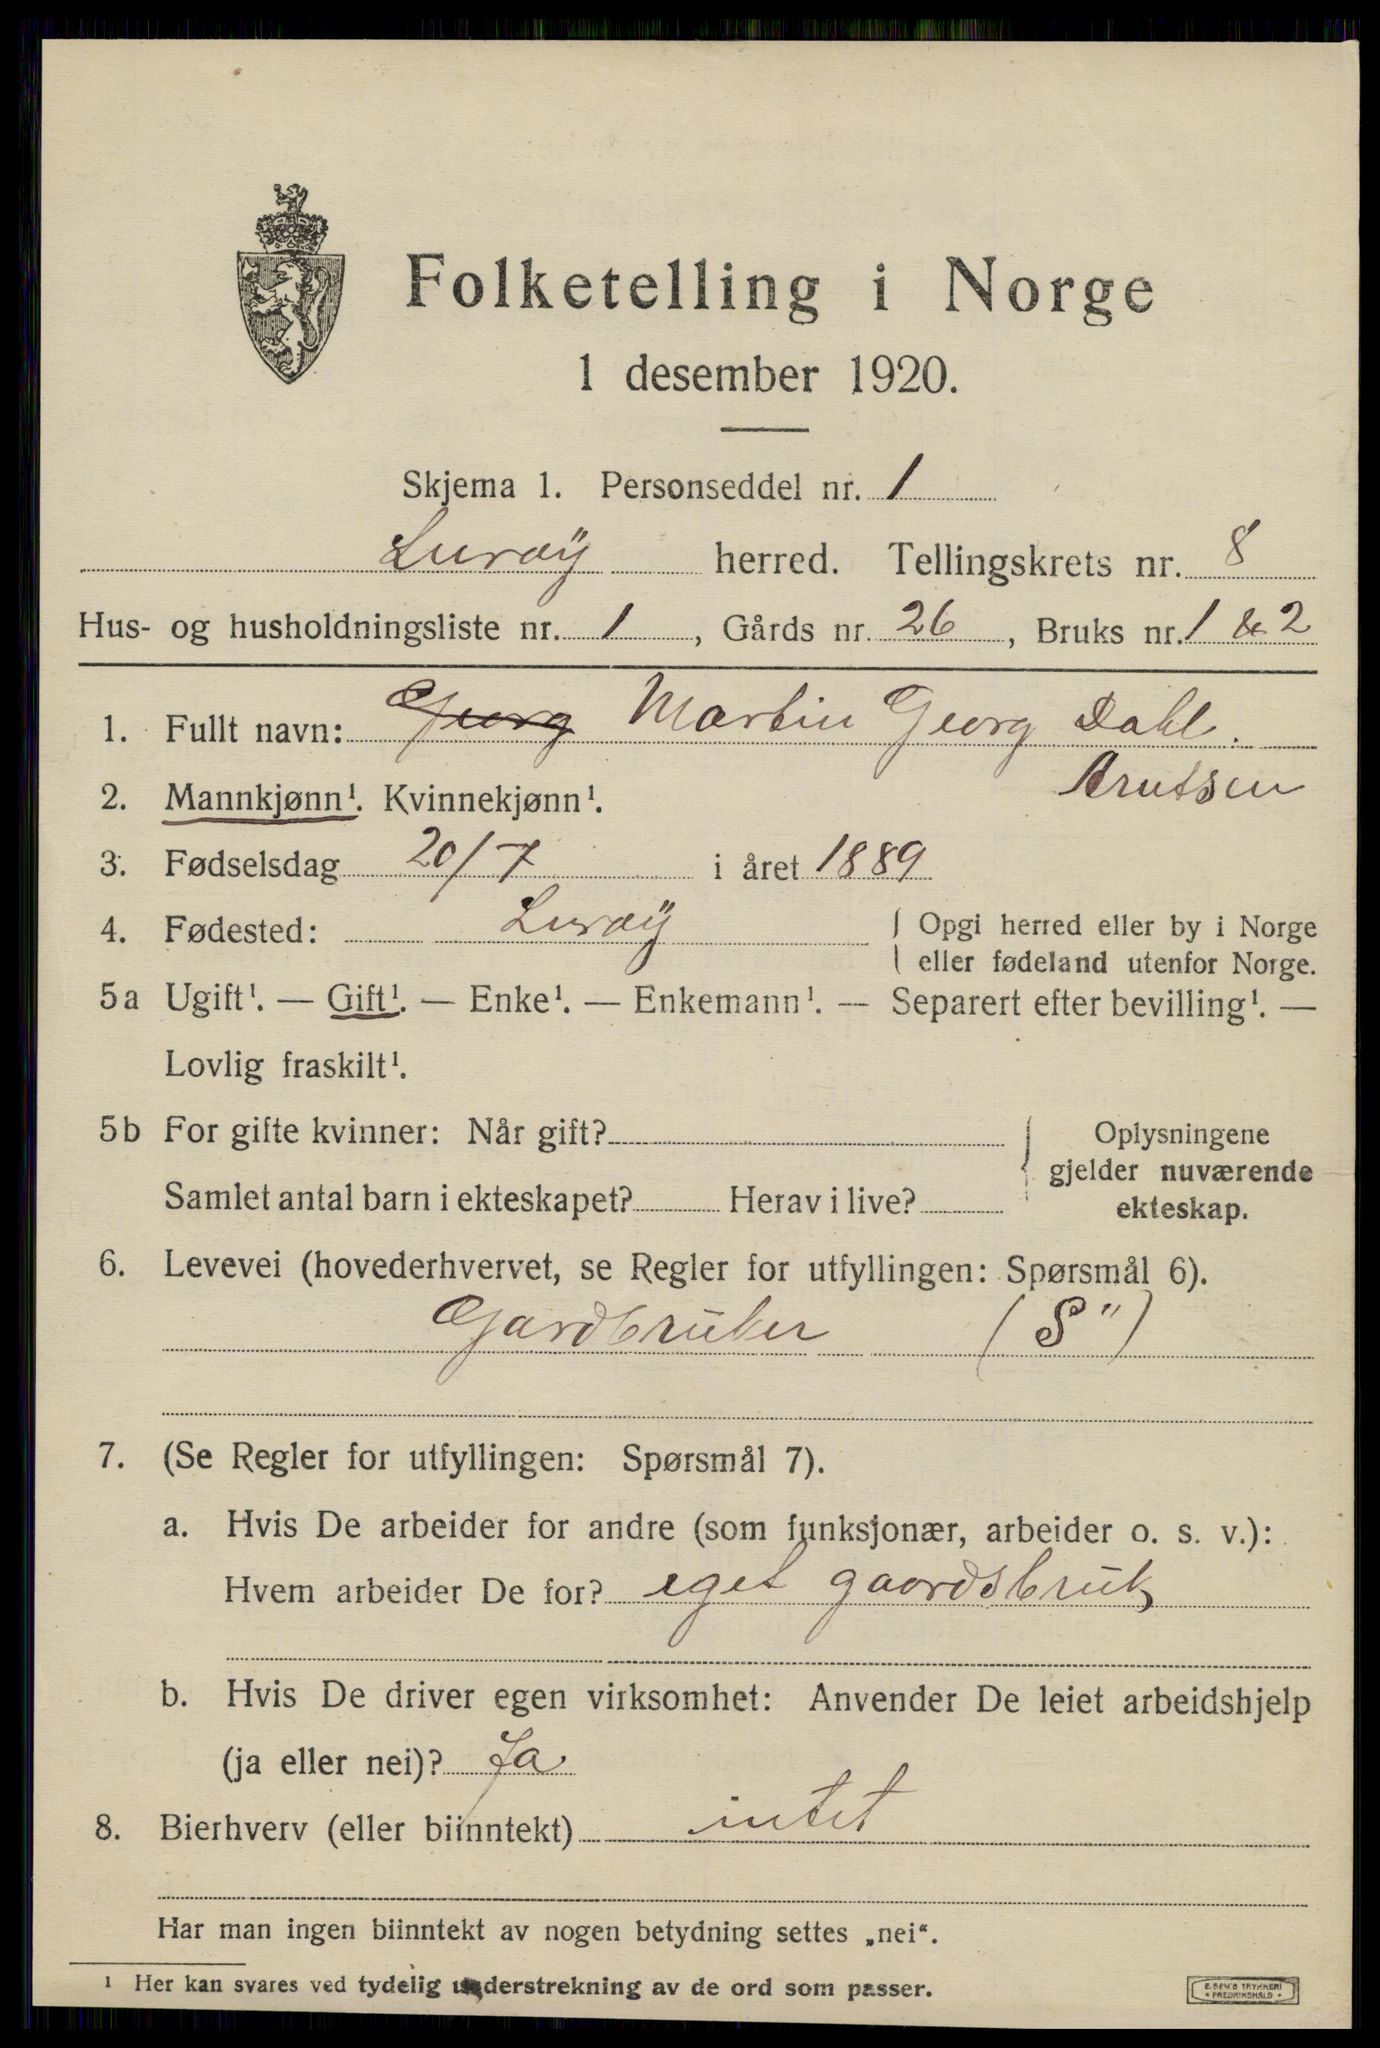 Folketelling i Norge
1 desember 1920.
Skjema 1. Personseddel nr. 1
Lurøy herred. Tellingskrets nr. 8
Hus- og husholdningsliste nr. 1, Gårds nr. 26, Bruks nr. 1 & 2
1. Fullt navn: Georg Martin Georg Dahl.
Arntsen
2. Mannkjønn¹. Kvinnekjønn¹.
3. Fødselsdag 20/7 i året 1889
4. Fødested: Lurøy { Opgi herred eller by i Norge
eller fødeland utenfor Norge.
5a Ugift¹. — Gift¹. — Enke¹. — Enkemann¹. — Separert efter bevilling¹. —
Lovlig fraskilt¹.
5b For gifte kvinner: Når gift? { Oplysningene
gjelder nuværende
Samlet antal barn i ekteskapet? Herav i live? ekteskap.
6. Levevei (hovederhvervet, se Regler for utfyllingen: Spørsmål 6).
Gardbruker (S")
7. (Se Regler for utfyllingen: Spørsmål 7).
a. Hvis De arbeider for andre (som funksjonær, arbeider o. s. v.):
Hvem arbeider De for? eget gaardsbruk
b. Hvis De driver egen virksomhet: Anvender De leiet arbeidshjelp
(ja eller nei)? Ja
8. Bierhverv (eller biinntekt) intet
Har man ingen biinntekt av nogen betydning settes „nei“.
¹ Her kan svares ved tydelig understrekning av de ord som passer.